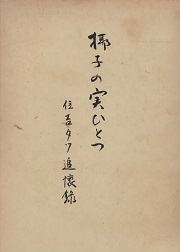 椰子の実ひとつ
住吉タツ追懐録